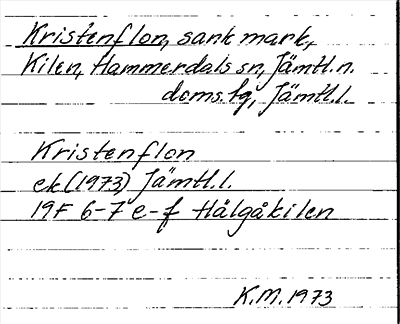 Kristenflon, sank mark,
Kilen, Hammerdals sn, Jämtl. n.
doms. lg, Jämtl. l.
Kristenflon
ek (1973) Jämtl. l.
19F 6-7 e-f Hålgåkilen
K.M. 1973